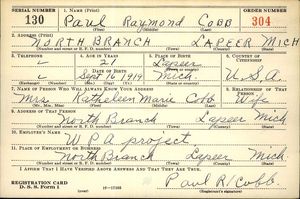 SERIAL NUMBER 1. NAME (Print) ORDER NUMBER
130 Paul Raymond Cobb 304
(First) (Middle) (Last)
2. ADDRESS (Print)
NORTH BRANCH LAPEER MICH
(Number and street or R. F. D. number) (Town) (County) (State)
3. TELEPHONE 4. AGE IN YEARS 5. PLACE OF BIRTH 6. COUNTRY OF CITIZENSHIP
21 Lapeer
DATE OF BIRTH (Town or county)
Sept 16 1919 Mich. U.S.A.
(Exchange) (Number) (Mo.) (Day) (Yr.) (State or country)
7. NAME OF PERSON WHO WILL ALWAYS KNOW YOUR ADDRESS 8. RELATIONSHIP OF THAT PERSON
Mrs Katheleen Marie Cobb Wife
(Mr., Mrs., Miss) (First) (Middle) (Last)
9. ADDRESS OF THAT PERSON
North Branch Lapeer Mich
(Number and street or R. F. D. number) (Town) (County) (State)
10. EMPLOYER'S NAME
W.P.A project
11. PLACE OF EMPLOYMENT OR BUSINESS
North Branch Lapeer Mich.
(Number and street or R. F. D. number) (Town) (County) (State)
I AFFIRM THAT I HAVE VERIFIED ABOVE ANSWERS AND THAT THEY ARE TRUE.
REGISTRATION CARD
D. S. S. Form 1 Paul R Cobb.
(Registrant's signature)